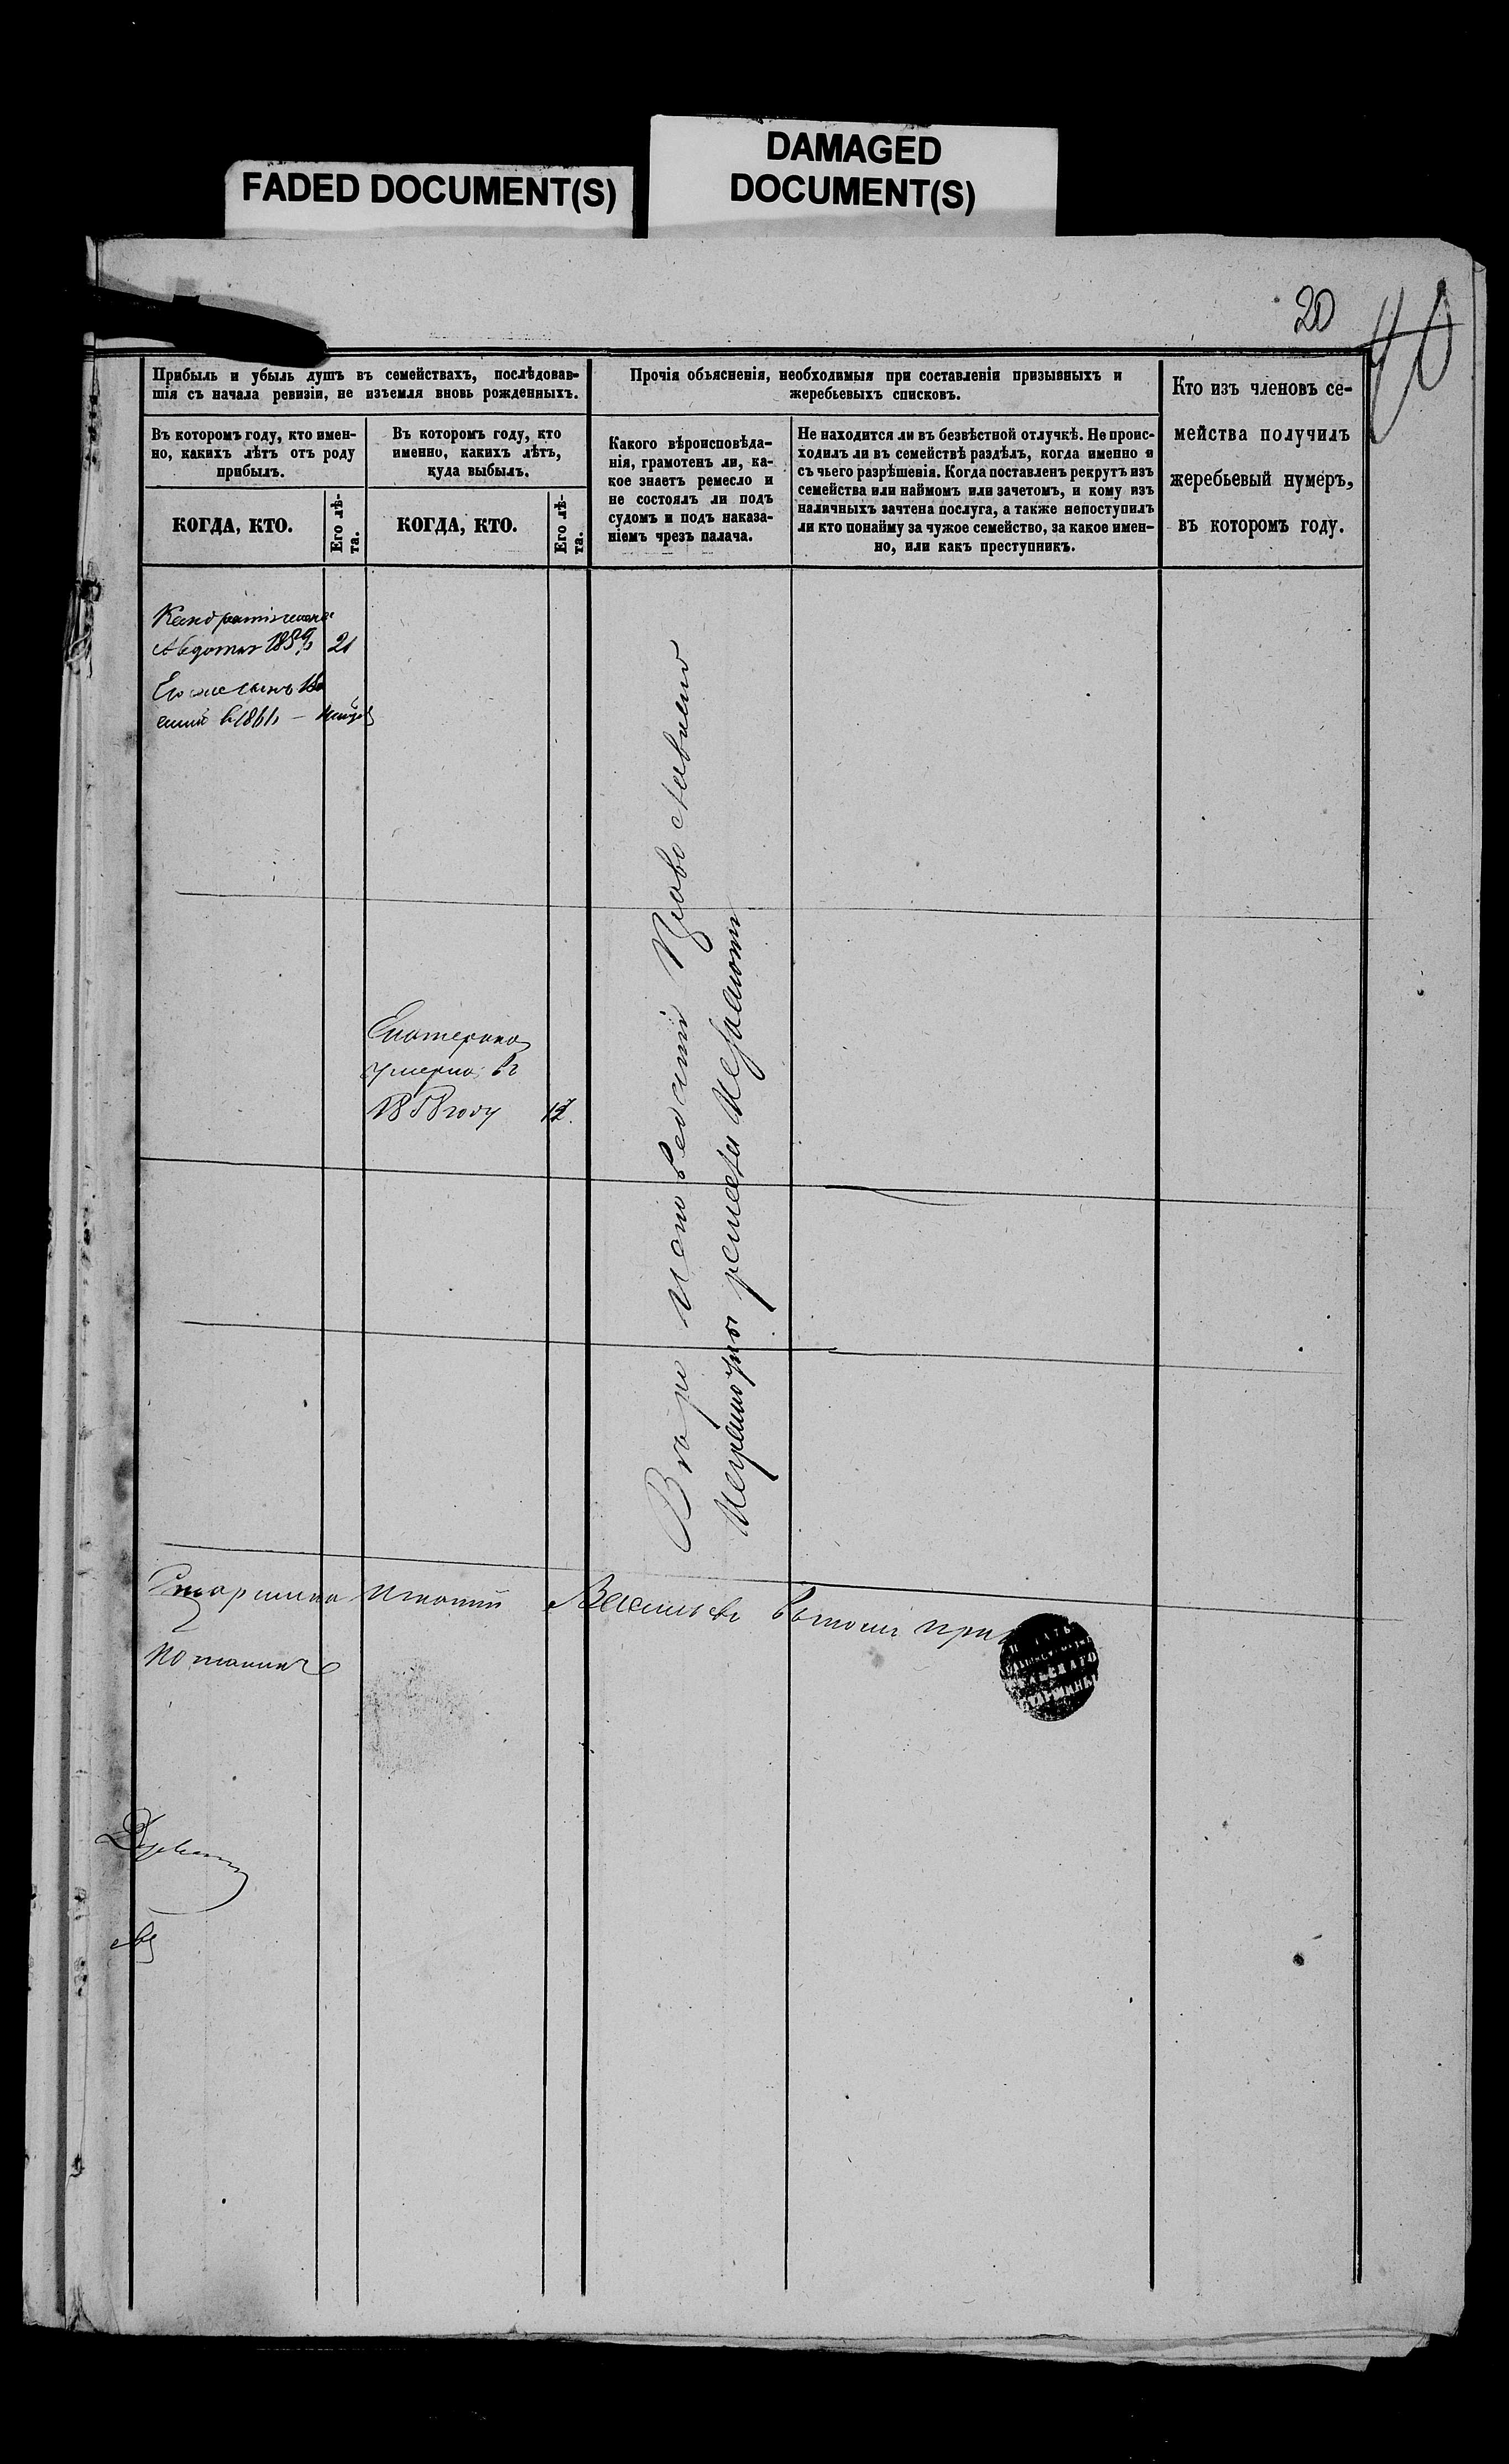 FADED DOCUMENT(S)
DAMAGED
DOCUMENT(S)
20
40
Прибыль и убыль душъ въ семействахъ, послѣдовав-
шія съ начала ревизіи, не изъемля вновь рожденныхъ.
Прочія объясненія, необходимыя при составленіи призывныхъ и
жеребьевыхъ списковъ.
Кто изъ членовъ се-
мейства получилъ
жеребьевый нумеръ,
въ которомъ году.
Въ которомъ году, кто имен-
но, какихъ лѣтъ отъ роду
прибылъ.
Въ которомъ году, кто
именно, какихъ лѣтъ,
куда выбылъ.
Какого вѣроисповѣда-
нія, грамотенъ ли, ка-
кое знаетъ ремесло и
не состоялъ ли подъ
судомъ и подъ наказа-
ніемъ чрезъ палача.
Не находится ли въ безвѣстной отлучкѣ. Не проис-
ходилъ ли въ семействѣ раздѣлъ, когда именно и
съ чьего разрѣшенія. Когда поставленъ рекрутъ изъ
семейства или наймомъ или зачетомъ, и кому изъ
наличныхъ зачтена послуга, а также непоступилъ
ли кто понайму за чужое семейство, за какое имен-
но, или какъ преступникъ.
КОГДА, КТО.
Его лѣ-
та.
КОГДА, КТО.
Его лѣ-
та.
Авдотья 1859 21
Его же сынъ Ва
силий в 1861
Екатерина
умерла въ
1858 году
Вѣро исповеданія Православнаго
Неграмотны ремесла Незнаютъ
Старшина Игнатий Васильевъ въ томъ
Потанинъ
СТАРШИНЫ